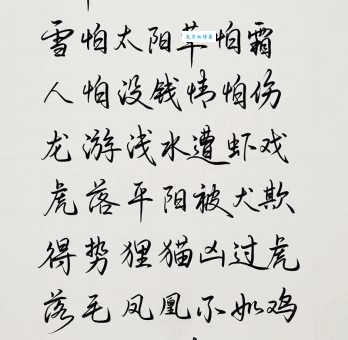 雪怕太阳草怕霜
人怕没钱情怕伤
龙游浅水遭虾戏
虎落平阳被犬欺
得势狸猫凶过虎
落毛凤凰不如鸡